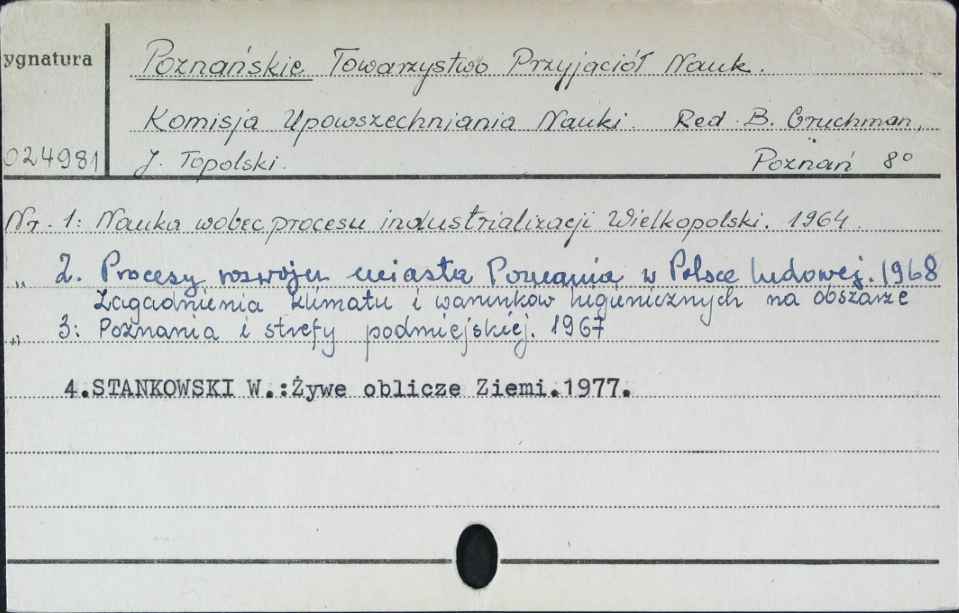 ygnatura
Poznańskie Towarzystwo Przyjaciół Nauk.
Komisja Upowszechniania Nauki. Red. B. Gruchman,
024981 J. Topolski. Poznań 8°
Nr. 1: Nauka wobec procesu industrializacji Wielkopolski. 1964.
„ 2. Procesy rozwoju miasta Poznania w Polsce Ludowej. 1968
Zagadnienia klimatu i warunków higienicznych na obszarze
„ 3: Poznania i strefy podmiejskiej. 1967
4.STANKOWSKI W.:Żywe oblicze Ziemi.1977.